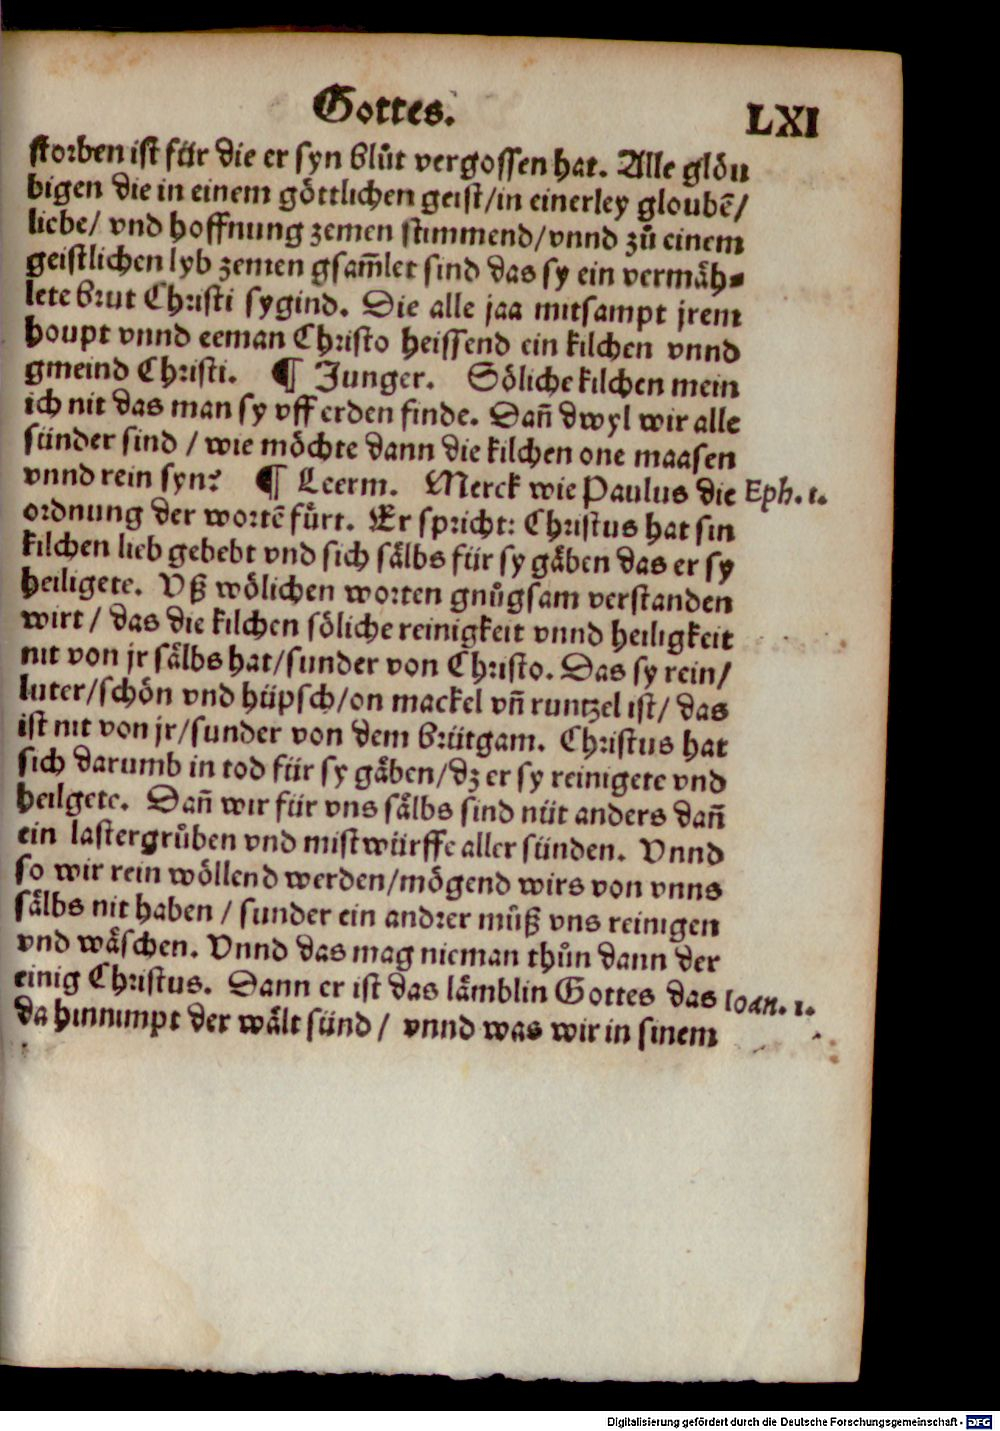 Gottes. LXI
storben ist für die er syn blůt vergossen hat. Alle glöu
bigen die in einem göttlichen geist/in einerley gloubē/
liebe/ vnd hoffnung zemen stimmend/vnnd zů einem
geistlichen lyb zemen gsam̄let sind das sy ein vermäh⸗
lete brut Christi sygind. Die alle jaa mitsampt jrem
houpt vnnd eeman Christo heissend ein kilchen vnnd
gmeind Christi. ¶ Junger. Söliche kilchen mein
ich nit das man sy vff erden finde. Dan̄ dwyl wir alle
sünder sind / wie möchte dann die kilchen one maasen
vnnd rein syn? ¶ Leerm. Merck wie Paulus die Eph. 1.
ordnung der wortē fürt. Er spricht: Christus hat sin
kilchen lieb gebebt vnd sich sälbs für sy gäben das er sy
heiligete. Vß wölichen worten gnůgsam verstanden
wirt / das die kilchen söliche reinigkeit vnnd heiligkeit
nit von jr sälbs hat/sunder von Christo. Das sy rein/
luter/schön vnd hüpsch/on mackel vn̄ runtzel ist/ das
ist nit von jr/sunder von dem brütgam. Christus hat
sich darumb in tod für sy gäben/dz er sy reinigete vnd
heilgete. Dan̄ wir für vns sälbs sind nüt anders dan̄
ein lastergrůben vnd mistwürffe aller sünden. Vnnd
so wir rein wöllend werden/mögend wirs von vnns
sälbs nit haben / sunder ein andrer můß vns reinigen
vnd wäschen. Vnnd das mag nieman thůn dann der
einig Christus. Dann er ist das lämblin Gottes das Ioan. 1.
da hinnimpt der wält sünd / vnnd was wir in sinem
Digitalisierung gefördert durch die Deutsche Forschungsgemeinschaft - DFG